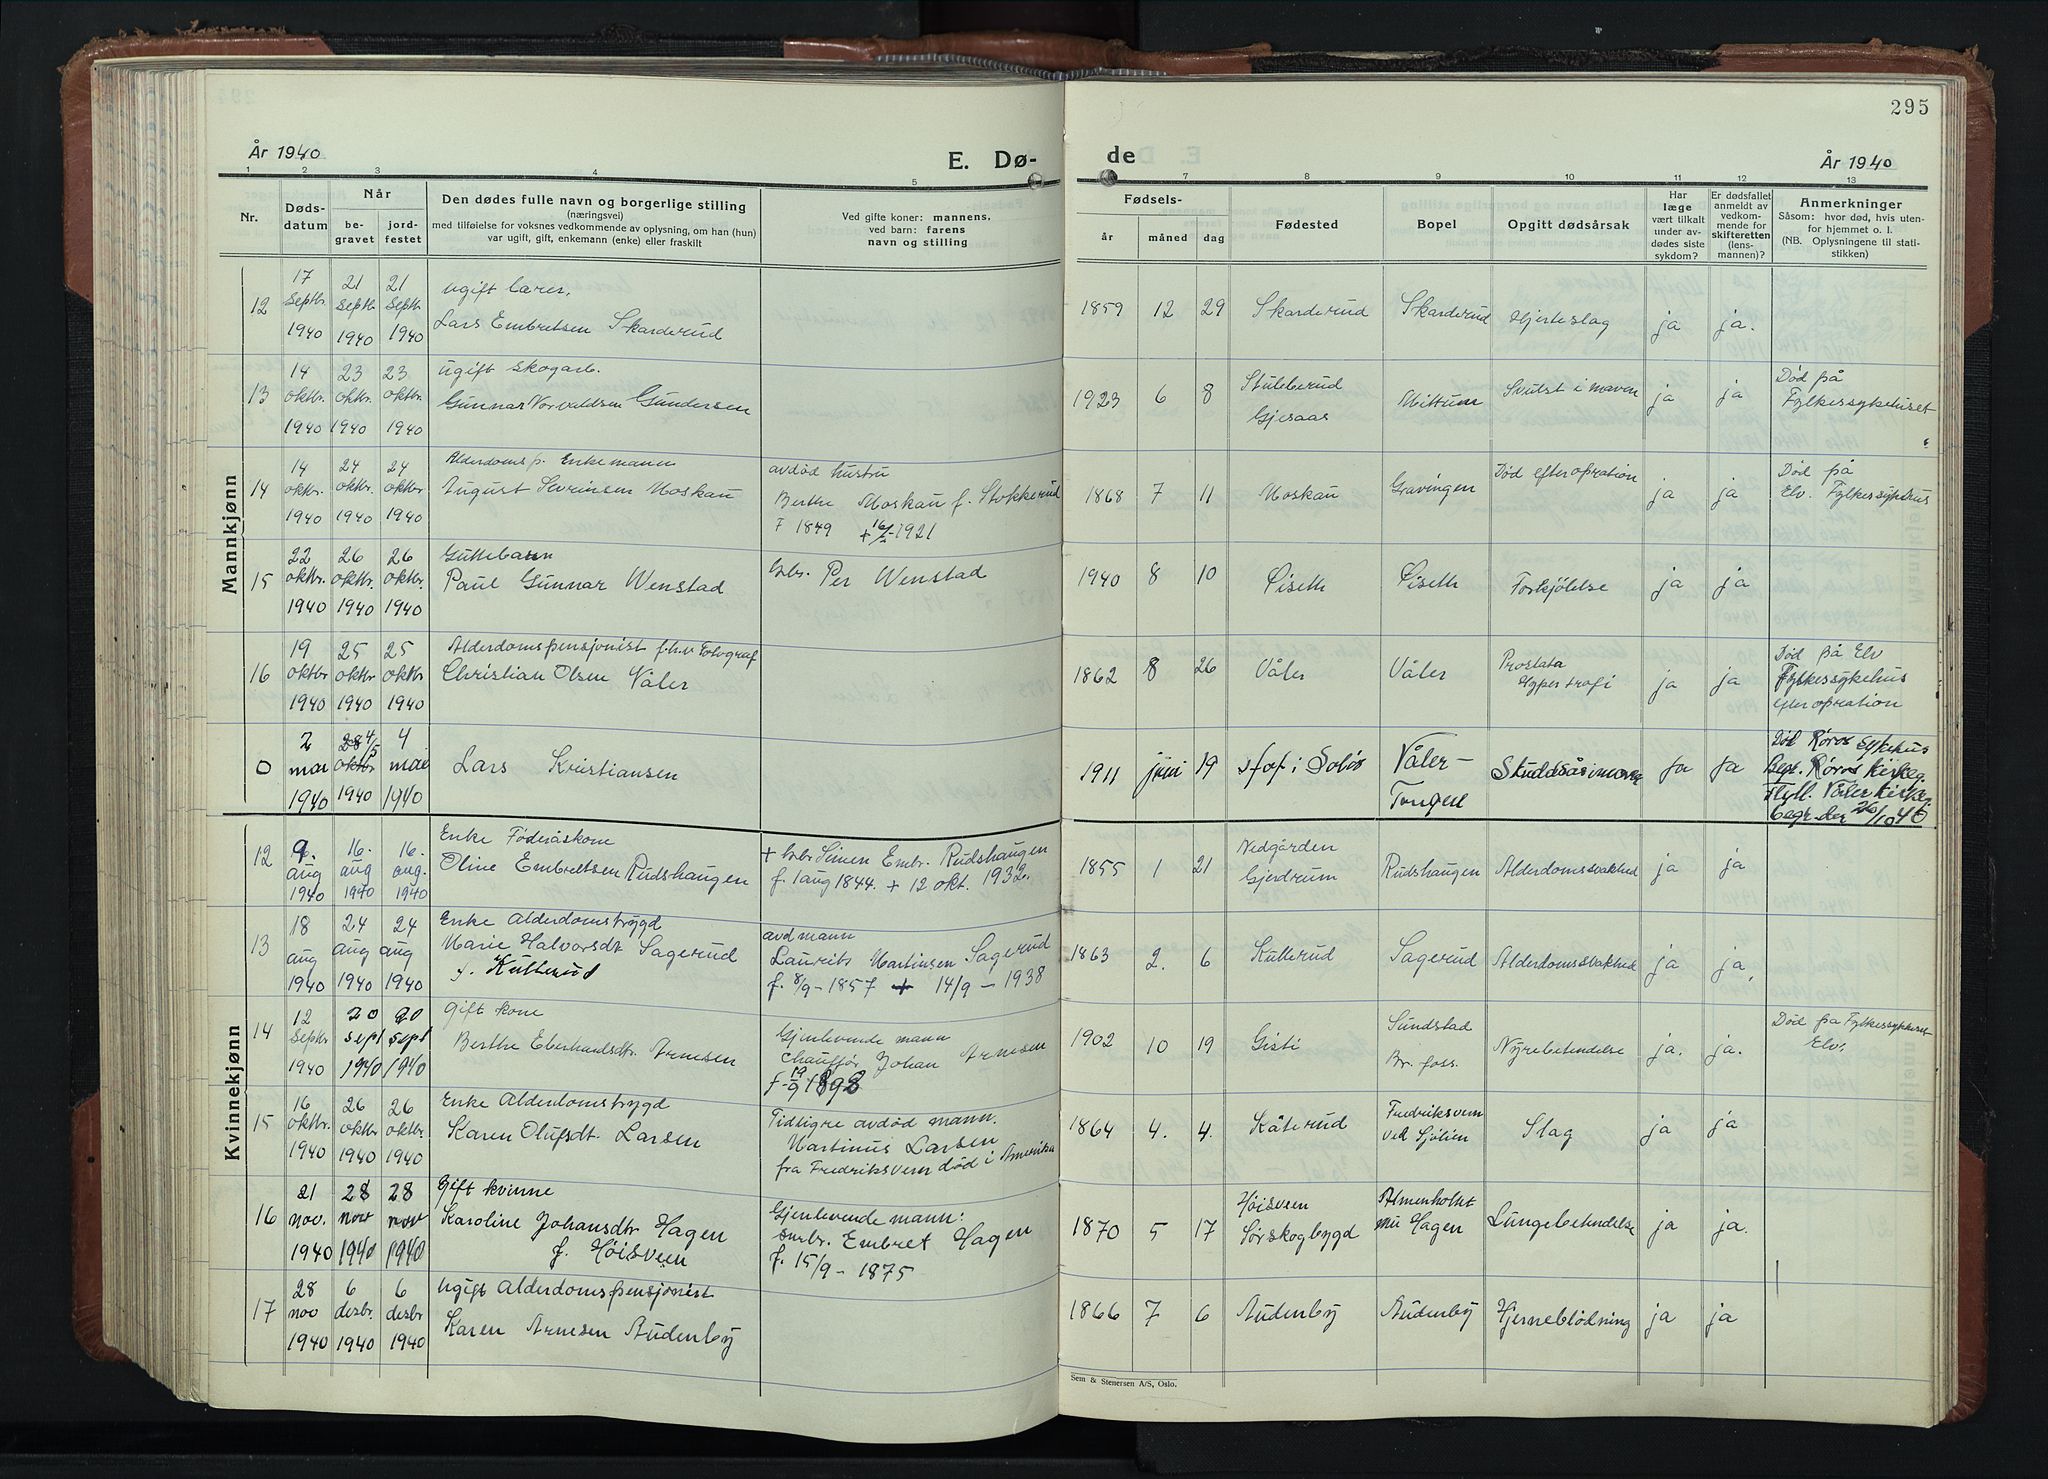 295
År 1940
E. Dø-
de
År 1940
1 2 3 4 5 7 8 9 10 11 12 13
Nr.
Døds-
datum
Når
be-
gravet
jord-
festet
Den dødes fulle navn og borgerlige stilling
(næringsvei)
med tilføielse for voksnes vedkommende av oplysning, om han (hun)
var ugift, gift, enkemann (enke) eller fraskilt
Ved gifte koner: mannens,
ved barn: farens
navn og stilling
Fødsels-
år måned dag
Fødested
Bopel
Opgitt dødsårsak
Har
læge
vært tilkalt
under av-
dødes siste
sykdom?
Er dødsfallet
anmeldt av
vedkom-
mende for
skifteretten
(lens-
mannen)?
Anmerkninger
Såsom: hvor død, hvis uten-
for hjemmet o. l.
(NB. Oplysningene til stati-
stikken)
Mannkjønn
12
17 21 21
Septbr. Septbr Septbr
1940 1940 1940
ugift lærer,
Lars Embretsen Skarderud
1859 12 29 Skarderud Skarderud Hjerteslag ja ja.
13
14 23 23
oktbr. oktbr. oktbr.
1940 1940 1940
ugift skogarb.
Gunnar Norvaldsen Gundersen
1923 6 8
Stubberud
Gjesaas
Mittum Svulst i maven ja ja
Død på
Fylkessykehuset
14
14 24 24
oktbr. oktbr. oktbr
1940 1940 1940
Alderdomsp. Enkemann
August Sevrinsen Moskau
avdød hustru
Berthe Moskau f. Stokkerud
F 1849 + 1921
1868 7 11 Moskau Gravingen Død efter opration ja ja
Død på
Elv. Fylkessykehus
15
22 26 26
oktbr. oktbr. oktbr.
1940 1940 1940
Guttebarn
Paul Gunnar Wenstad
Per Wenstad
1940 8 10 Piseth Piseth Forkjölelse ja ja
16
19 25 25
oktbr oktbr oktbr
1940 1940 1940
Alderdomspensjonist f.h.v. Fotograf
Christian Olsen Våler
1862 8 26 Våler Våler
Prostata
Hypertrofi
ja ja
Død på Elv
Fylkessykehus
efter opration
0
2 28 4/5 4
mai oktbr mai
1940 1940 1940
Lars Kristiansen
1911 juni 19
Våler -
Tongen
ja ja
Død Røros Sykehus
Begr. Røros kirkeg.
Flytt. Våler kirkeg.
begr. den 26/10 40
Kvinnekjønn
12
9. 16. 16.
aug aug aug.
1940 1940 1940
Enke Føderåskone
Oline Embretsen Rudshaugen
+ Simen Embr. Rudshaugen
f. 1 aug 1844. + 12 okt. 1932.
1855 1 21
Nedgården
Gjerdrum
Rudshaugen Alderdomssvakhed ja ja
13
18 24 24
aug aug aug
1940 1940 1940
Enke Alderdomstrygd
Marie Halvorsdt Sagerud
f. Kutterud
avd mann
Laurits Martinsen Sagerud
f. 8/9 - 1857 + 14/9 - 1938
1863 2. 6 Kutterud Sagerud Alderdomssvakhed ja ja,
14
12 20 20
Septbr sept sept
1940 1940 1940
Gift kone
Berthe Eberhardsdtr Arnesen
Gjenlevende mann
Chauffør Johan Arnesen
f - 19/9 1898
1902 10 19 Gisti
Sundstad
Br. foss.
Nyrebetendelse ja. ja.
Død på Fylkessykehuset
Elv.
15
16 26 26
oktbr. oktbr oktbr.
1940 1940 1940
Enke Alderdomstrygd
Karen Olufsdt. Larsen
Tidligre avdød mann.
Martinus Larsen
fra Fredriksveen død i Amerika
1864 4. 4. Kåterud
Fredriksveen
ved Sjölien
Slag ja ja
16
21 28 28
nov. nov nov
1940 1940 1940
Gift kvinne
Karoline Johansdtr Hagen
f. Høisveen
Gjenlevende mann:
smbr. Embret Hagen
f. 15/9 - 1875
1870 5 17
Høisveen
Sørskogbygd
Hagen
Lungebetendelse ja ja.
17
28 6 6
nov desbr. desbr
1940 1940 1940
Ugift Alderdomspensjonist
Karen Arnesen Audenby
1866 7 6 Audenby Audenby Hjerneblödning ja ja
Sem & Stenersen A/S, Oslo.